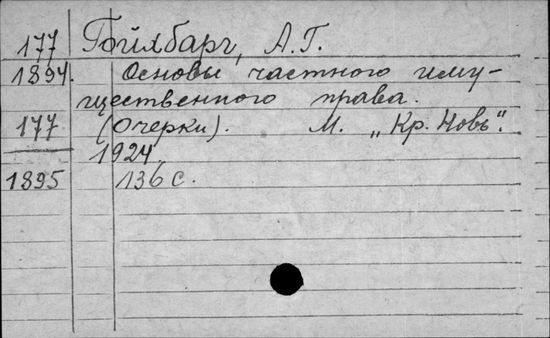 177 Гойхбарг, А.Г.
1894. Основы частного иму-
щественного права.
177 (Очерки). М. „Кр. Новь".
1924
1895 136 с.